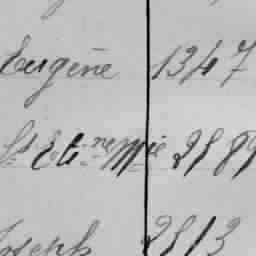 Eugène 1347
St Etne Mie 2889
Joseph 2813